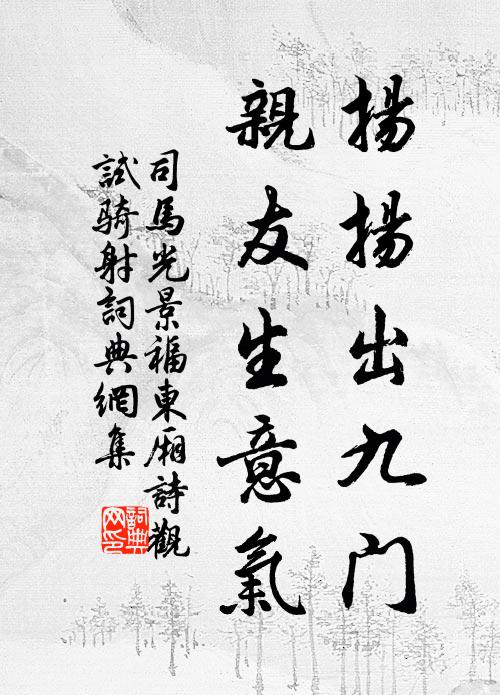 揚揚出九門
親友生意氣
司馬光景福東廂詩觀
試骑射詞典網集
詞典网印